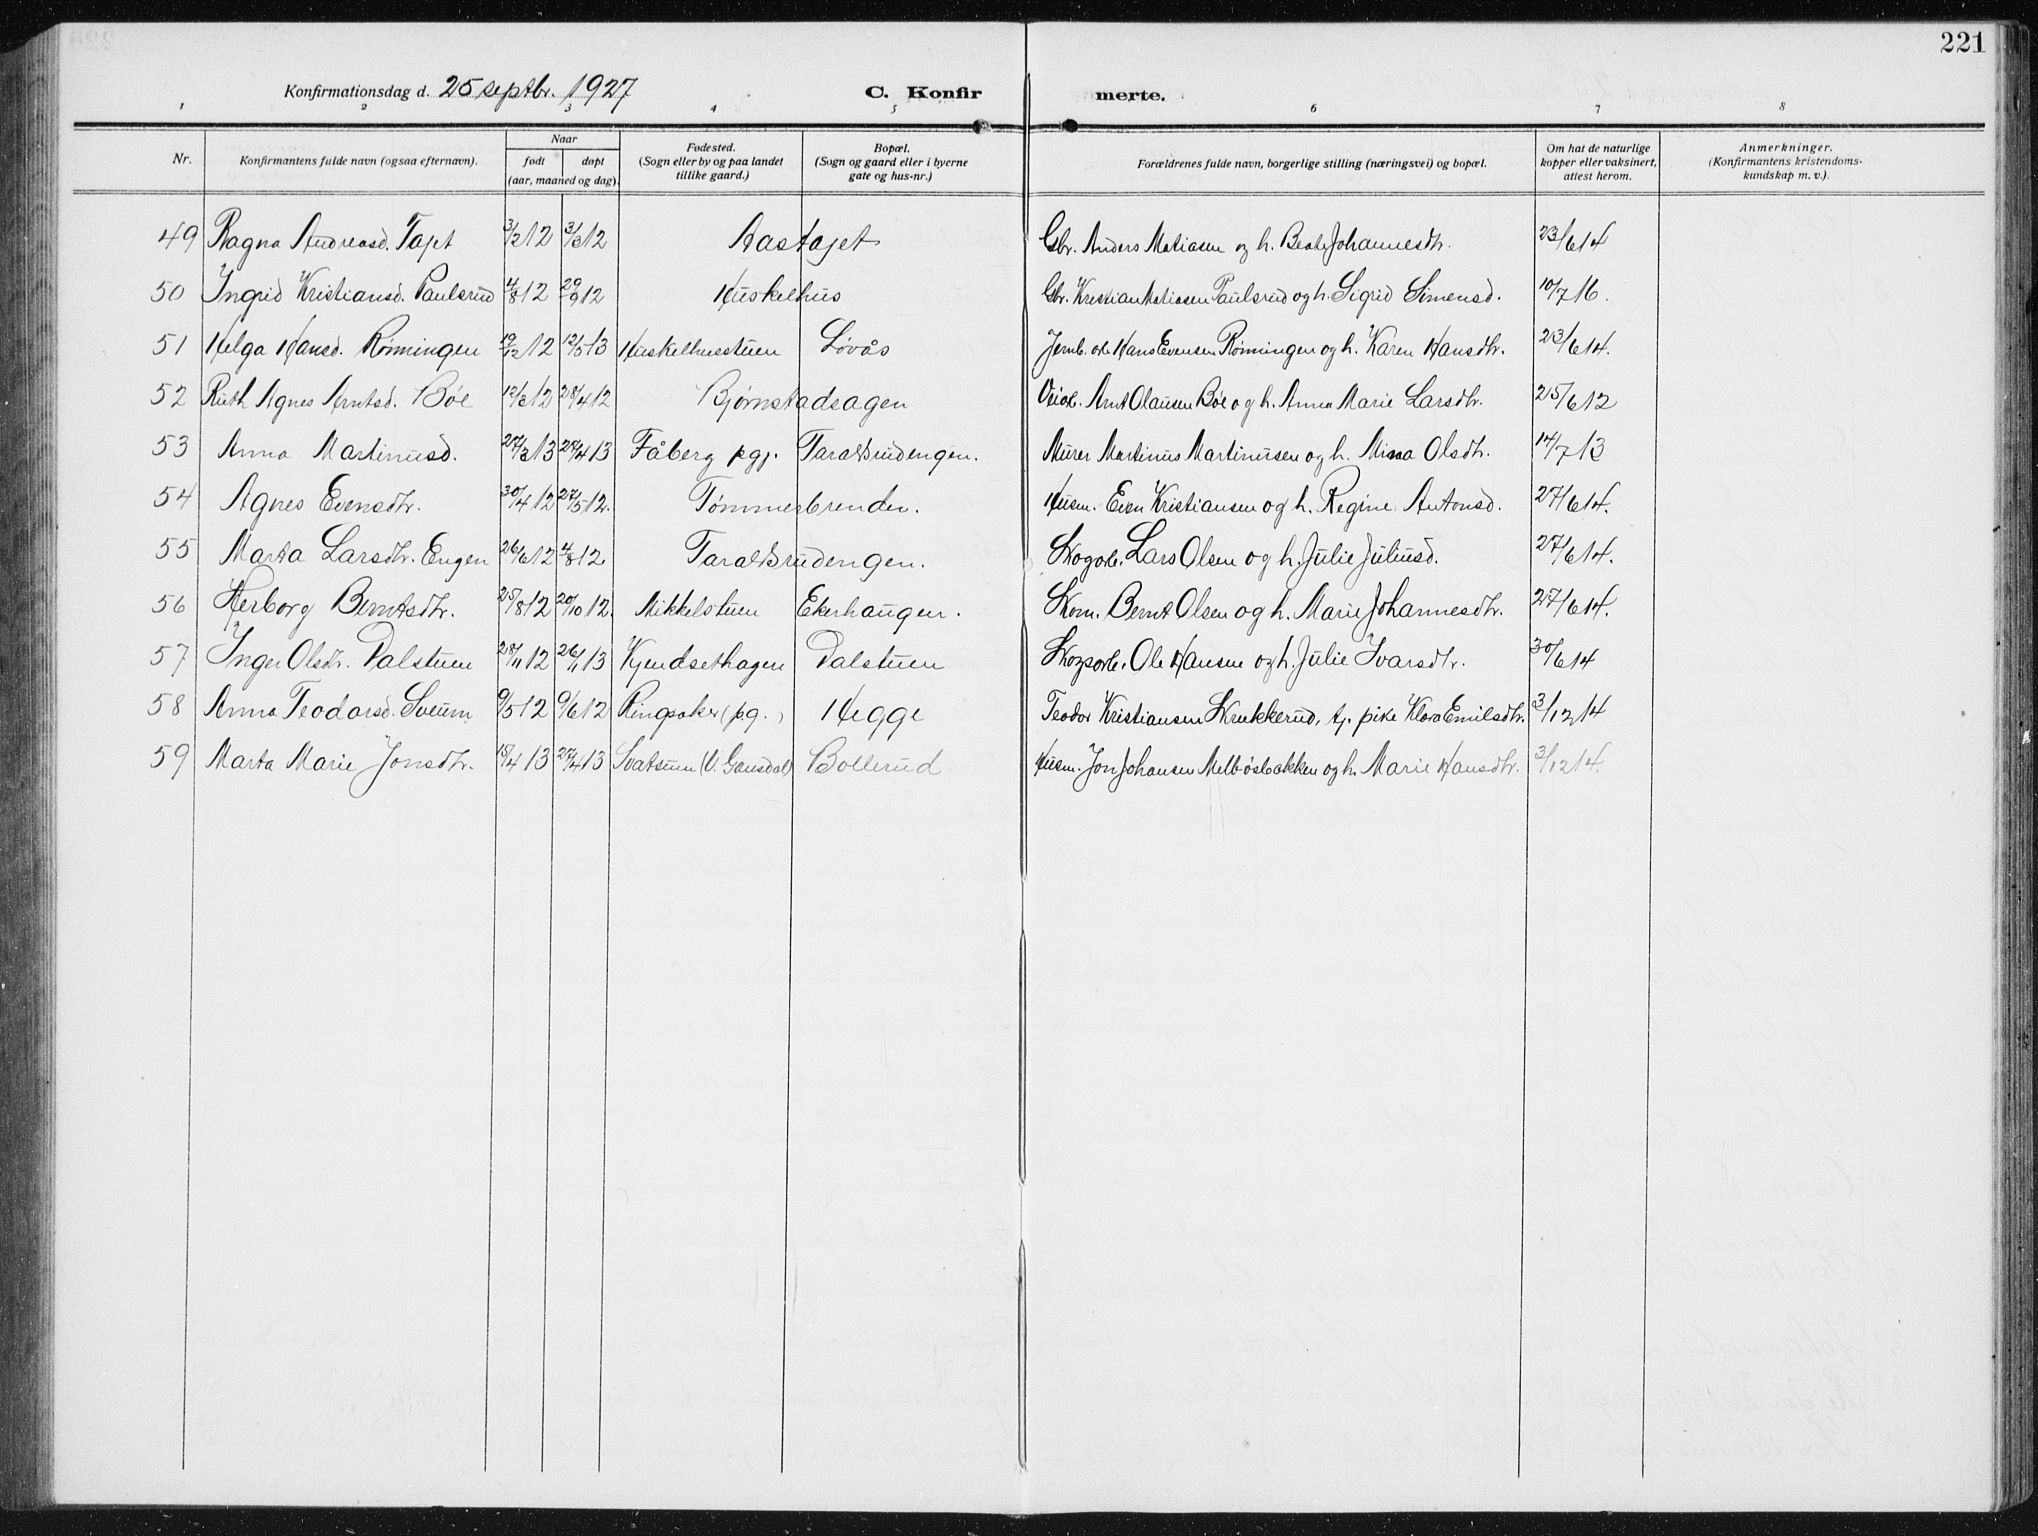 221
Konfirmationsdag d. 25 septbr. 1927 C. Konfirmerte.
1 2 3 4 5 6 7 8
Nr. Konfirmantens fulde navn (ogsaa efternavn). Naar født døpt (aar, maaned og dag). Fødested. (Sogn eller by og paa landet tillike gaard.) Bopæl. (Sogn og gaard eller i byerne gate og hus-nr.) Forældrenes fulde navn, borgerlige stilling (næringsvei) og bopæl. Om hat de naturlige kopper eller vaksinert, attest herom. Anmerkninger. (Konfirmantens kristendomskundskap m. v.).
49 Ragna Andreasd. Tajet 3/2 12 3/3 12 Aastajet Gbr. Anders Matiasen og h. Beate Johannesdtr. 23/6 14
50 Ingrid Kristiansd. Paulsrud 4/8 12 29/9 12 Huskelhus Gbr. Kristian Matiasen Paulsrud og h. Sigrid Simensd. 10/7 16.
51 Helga Hansd. Rønningen 19/12 12 12/5 13 Huskelhusstuen Løvås Jernb. arb. Hans Evensen Rønningen og h. Karen Hansdtr. 23/6 14.
52 Ruth Agnes Arntsd. Bøe 12/3 12 28/4 12 Bjørnstadsagen Arnt Olausen Bøe og h. Anna Marie Larsdtr. 25/6 12
53 Anna Martinusd. 27/3 13 27/4 13 Fåberg pgj. Taralsrudengen. Murer Martinus Martinusen og h. Mina Olsdtr. 14/7 13
54 Agnes Evensdtr. 30/4 12 27/5 12. Tømmerbrenden. Husm. Even Kristiansen og h. Regine Antonsd. 27/6 14.
55 Marta Larsdtr. Engen 26/6 12 4/8 12 Taralsrudengen. Skogarb. Lars Olsen og h. Julie Juliusd. 27/6 14.
56 Herborg Berntsdtr. 25/8 12 20/10 12. Mikkelstuen Ekerhaugen. Skom. Bernt Olsen og h. Marie Johannesdtr. 27/6 14.
57 Inger Olsdtr. Dalstuen 28/11 12 26/1 13 Kjendsethagen Dalstuen Skogsarb. Ole Hansen og h. Julie Ivarsdtr. 30/6 14
58 Anna Teodorsd. Sveum 9/5 12 9/6 12 Ringsaker (pg.) Hegge Teodor Kristiansen Skrukkerud, tj. pike Klara Emilsdtr. 3/12 14
59 Marta Marie Jonsdtr. 18/4 13 27/4 13 Svatsum (V. Gausdal) Bollerud Husm. Jon Johansen Melbøsbakken og h. Marie Hansdtr. 3/12 14.